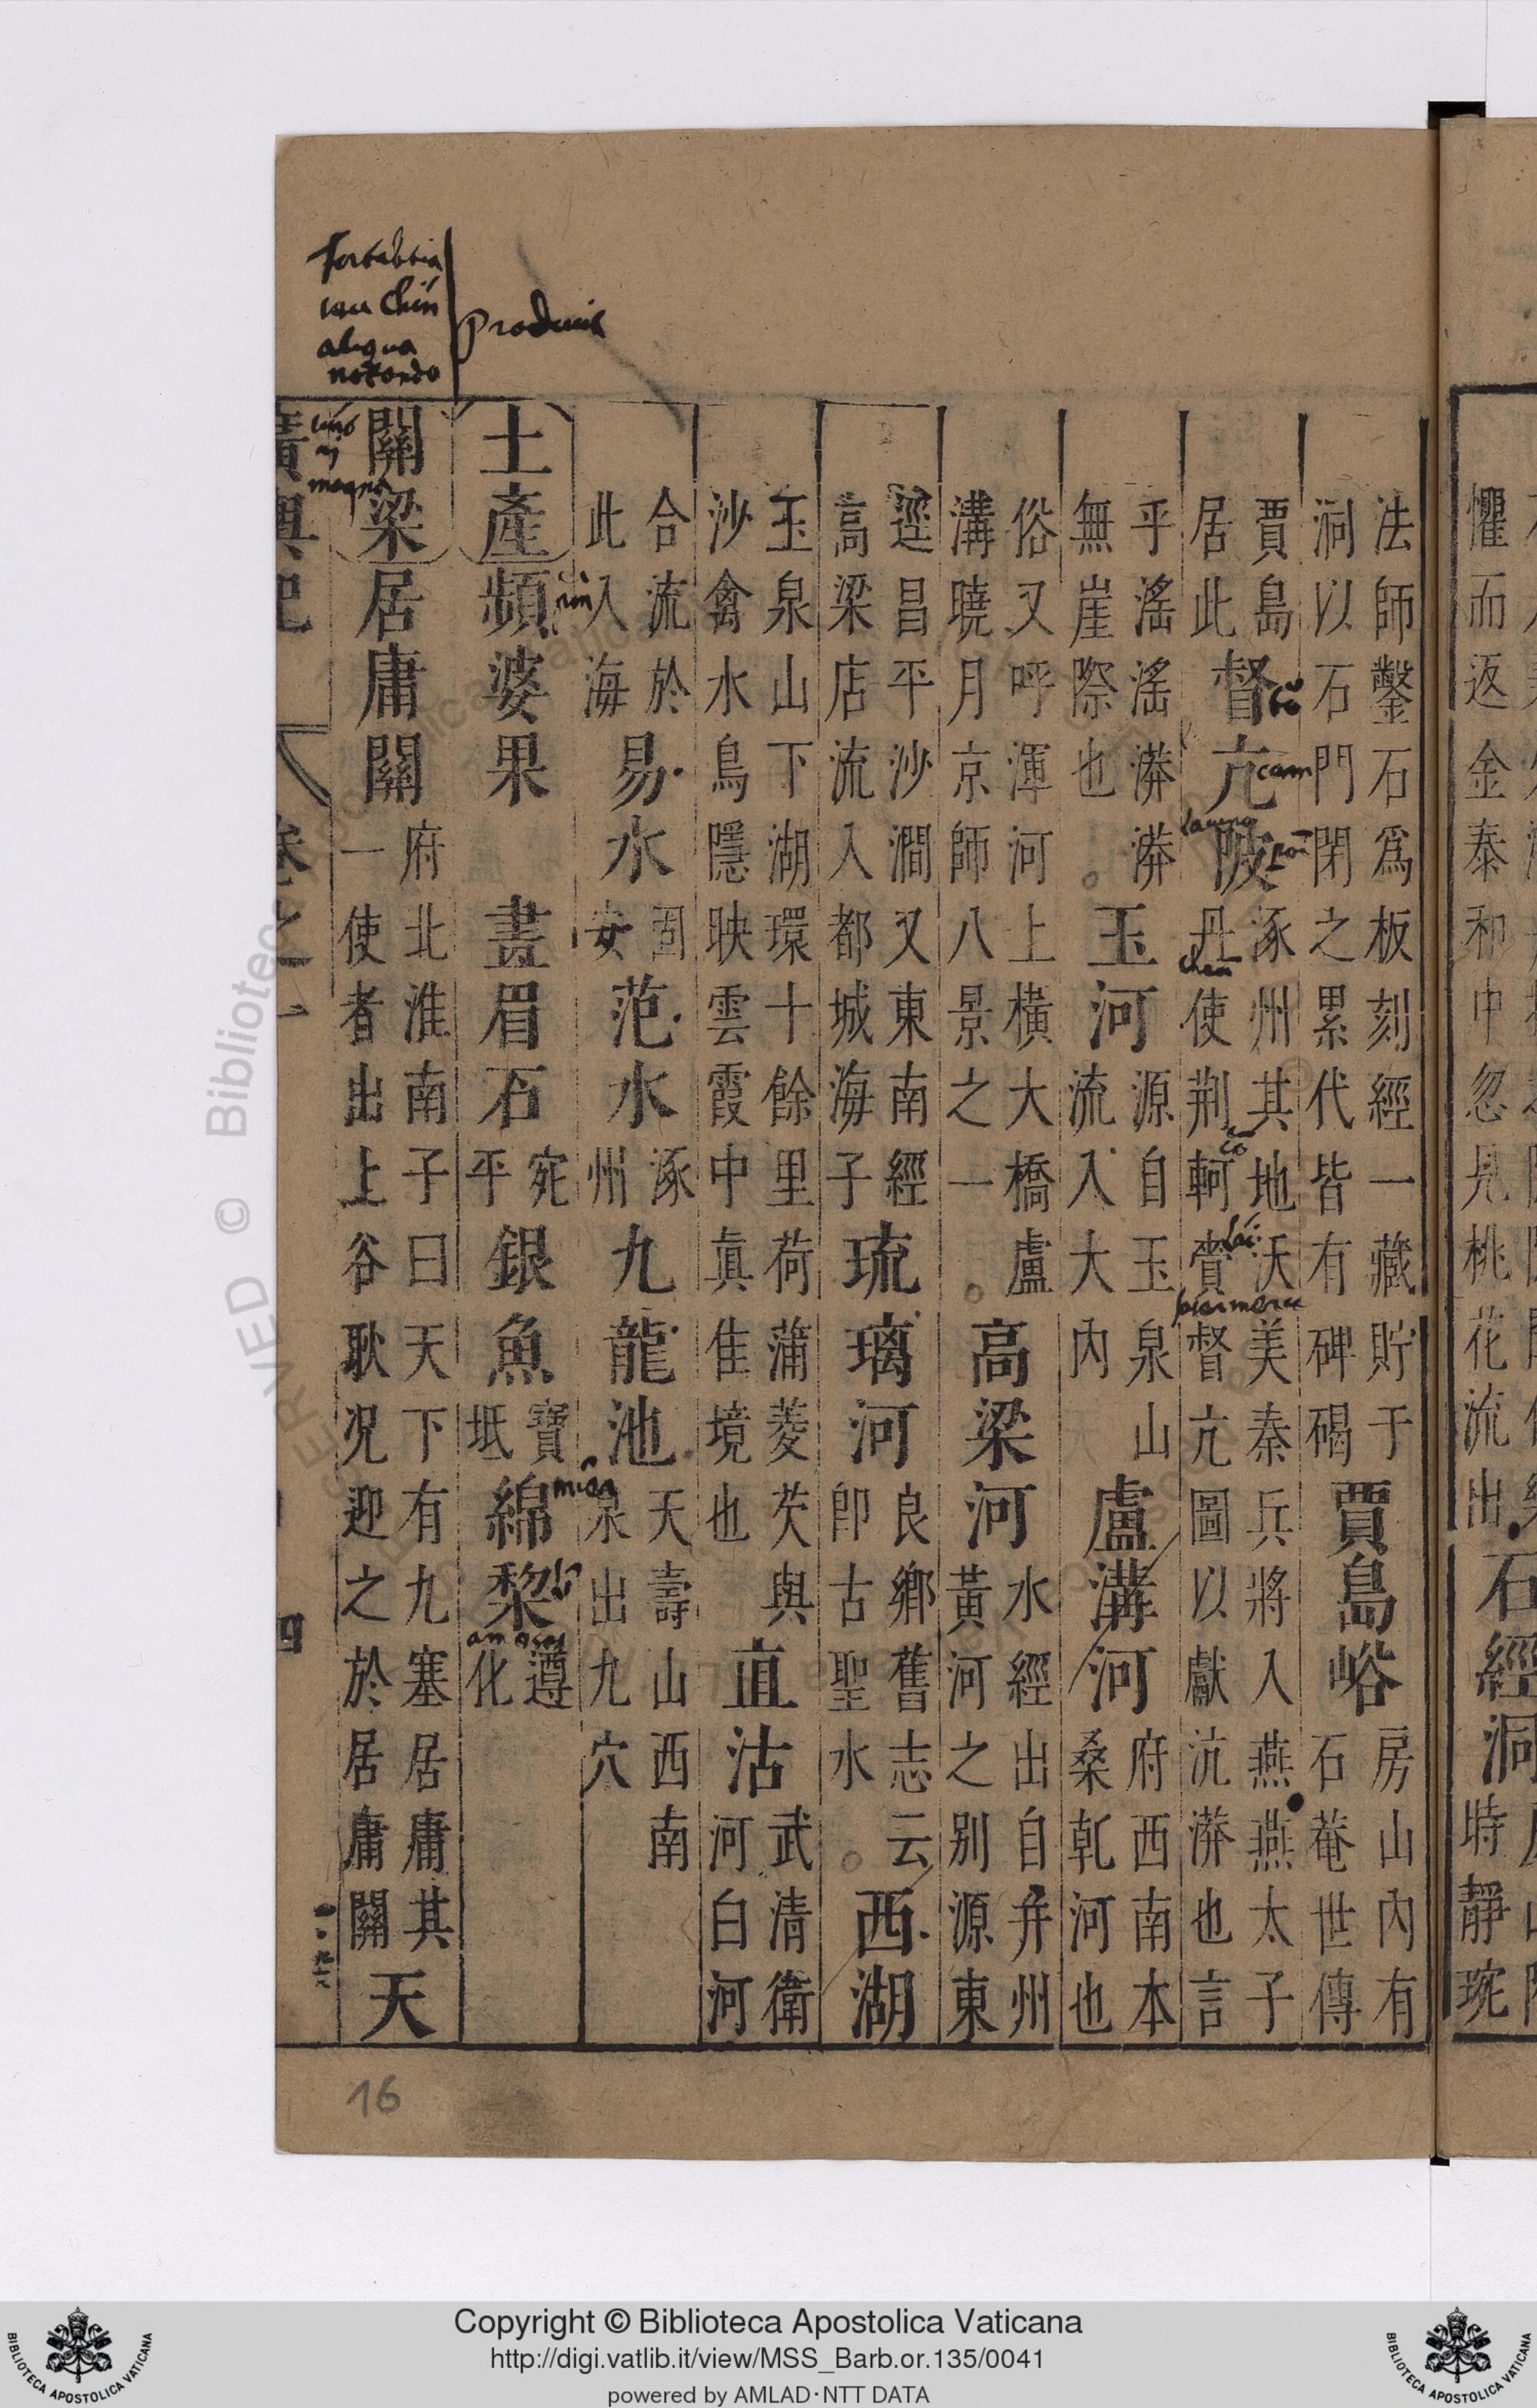 法師鑿石爲板刻經一藏貯于
洞以石門閉之累代皆有碑碣
賈島峪
房山內有
石菴世傳
賈島
居此
督亢陂
涿州其地沃美秦兵將入燕燕太子
丹使荆軻賫督亢圖以獻沆漭也言
乎滛滛漭漭
無崖際也
玉河
源自玉泉山
流入大內
盧溝河
府西南本
桑乹河也
俗又呼渾河上橫大橋盧
溝曉月京師八景之一
高梁河
水經出自并州
黃河之别源東
逕昌平沙澗又東南經
高梁店流入都城海子
琉璃河
良鄉舊志云
卽古聖水
西湖
玉泉山下湖環十餘里荷蒲菱芡與
沙禽水鳥隱映雲霞中真佳境也
直沽
武清衛
河白河
合流於
此入海
易水
固
安
范水
涿
州
九龍池
天壽山西南
泉出九穴
土產
頻婆果
畫眉石
宛
平
銀魚
寶
坻
綿棃
遵
化
關梁
居庸關
府北淮南子曰天下有九塞居庸其
一使者出上谷耿况迎之於居庸關
天
廣輿記
卷之一
四
Produuit
aliqua
notando
magna
cam
chen
miên
懼而返金泰和中忽見桃花流出
石經洞
時靜琬
16
Copyright © Biblioteca Apostolica Vaticana
http://digi.vatlib.it/view/MSS_Barb.or.135/0041
powered by AMLAD·NTT DATA
BIBLIOTECA APOSTOLICA VATICANA
BIBLIOTECA APOSTOLICA VATICANA